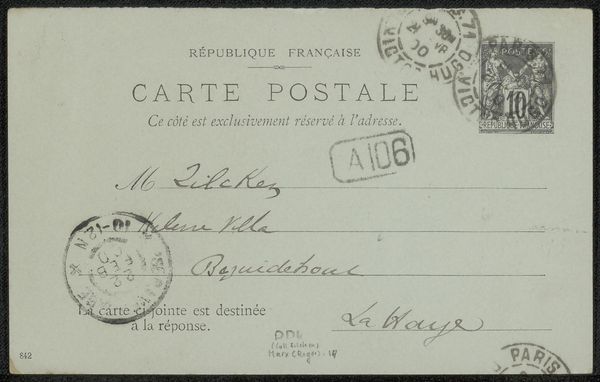 RÉPUBLIQUE FRANÇAISE
CARTE POSTALE
Ce côté est exclusivement réservé à l'adresse.
POSTES
10
RÉPUBLIQUE FRANÇAISE
PARIS 71
VICTOR HUGO
A106
M Zilcken
Helene Villa
Bezuidehout
La Haye
10-12 N
La carte ci-jointe est destinée
à la réponse.
842
PARIS